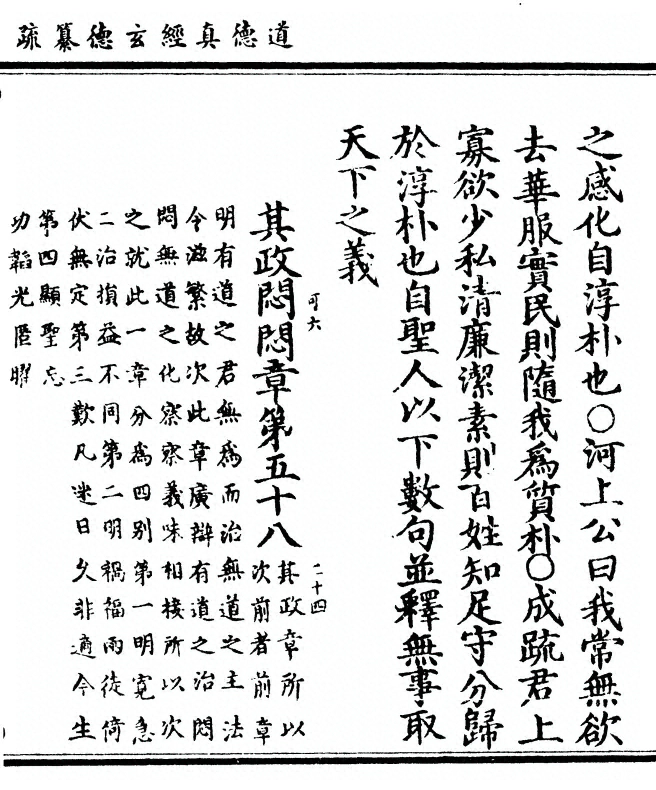 道德真經玄德纂疏
之感化自淳朴也〇河上公曰我常無欲
去華服實民則隨我爲質朴〇成疏君上
寡欲少私清廉潔素則百姓知足守分歸
於淳朴也自聖人以下數句並釋無事取
天下之義
可六
二十四
其政悶悶章第五十八
其政章所以
次前者前章
明有道之君無爲而治無道之主法
令滋繁故次此章廣辯有道之治悶
悶無道之化察察義味相接所以次
之就此一章分爲四別第一明寬急
二治損益不同第二明禍福兩徒倚
伏無定第三歎凡迷日久非適今生
第四顯聖忘
功韜光匿曜